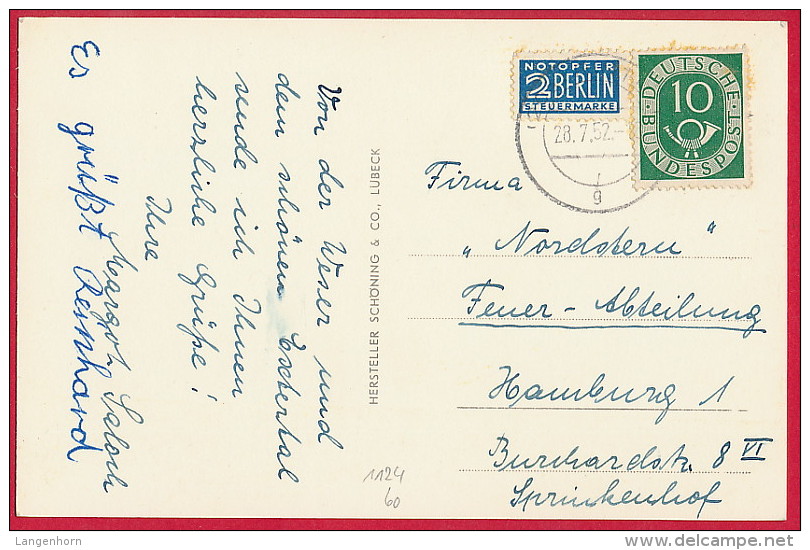 Von der Weser und
dem schönen Extertal
sende ich Ihnen
herzliche Grüße!
Ihre
Margot
Es grüßt Reinhard
HERSTELLER SCHÖNING & CO., LÜBECK
NOTOPFER
2 BERLIN
STEUERMARKE
DEUTSCHE
10
BUNDESPOST
28.7.52.-
g
Firma
„Nordstern“
Feuer - Abteilung
Hamburg 1
Burchardstr. 8 VI
Sprinkenhof
1124
60
© Langenhorn
www.delcampe.net